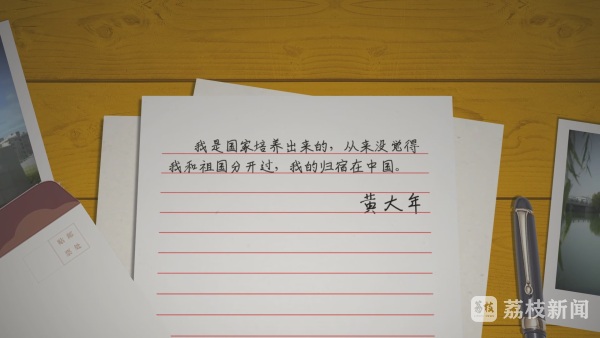 我是国家培养出来的，从来没觉得
我和祖国分开过，我的归宿在中国。
黄大年
荔枝新闻